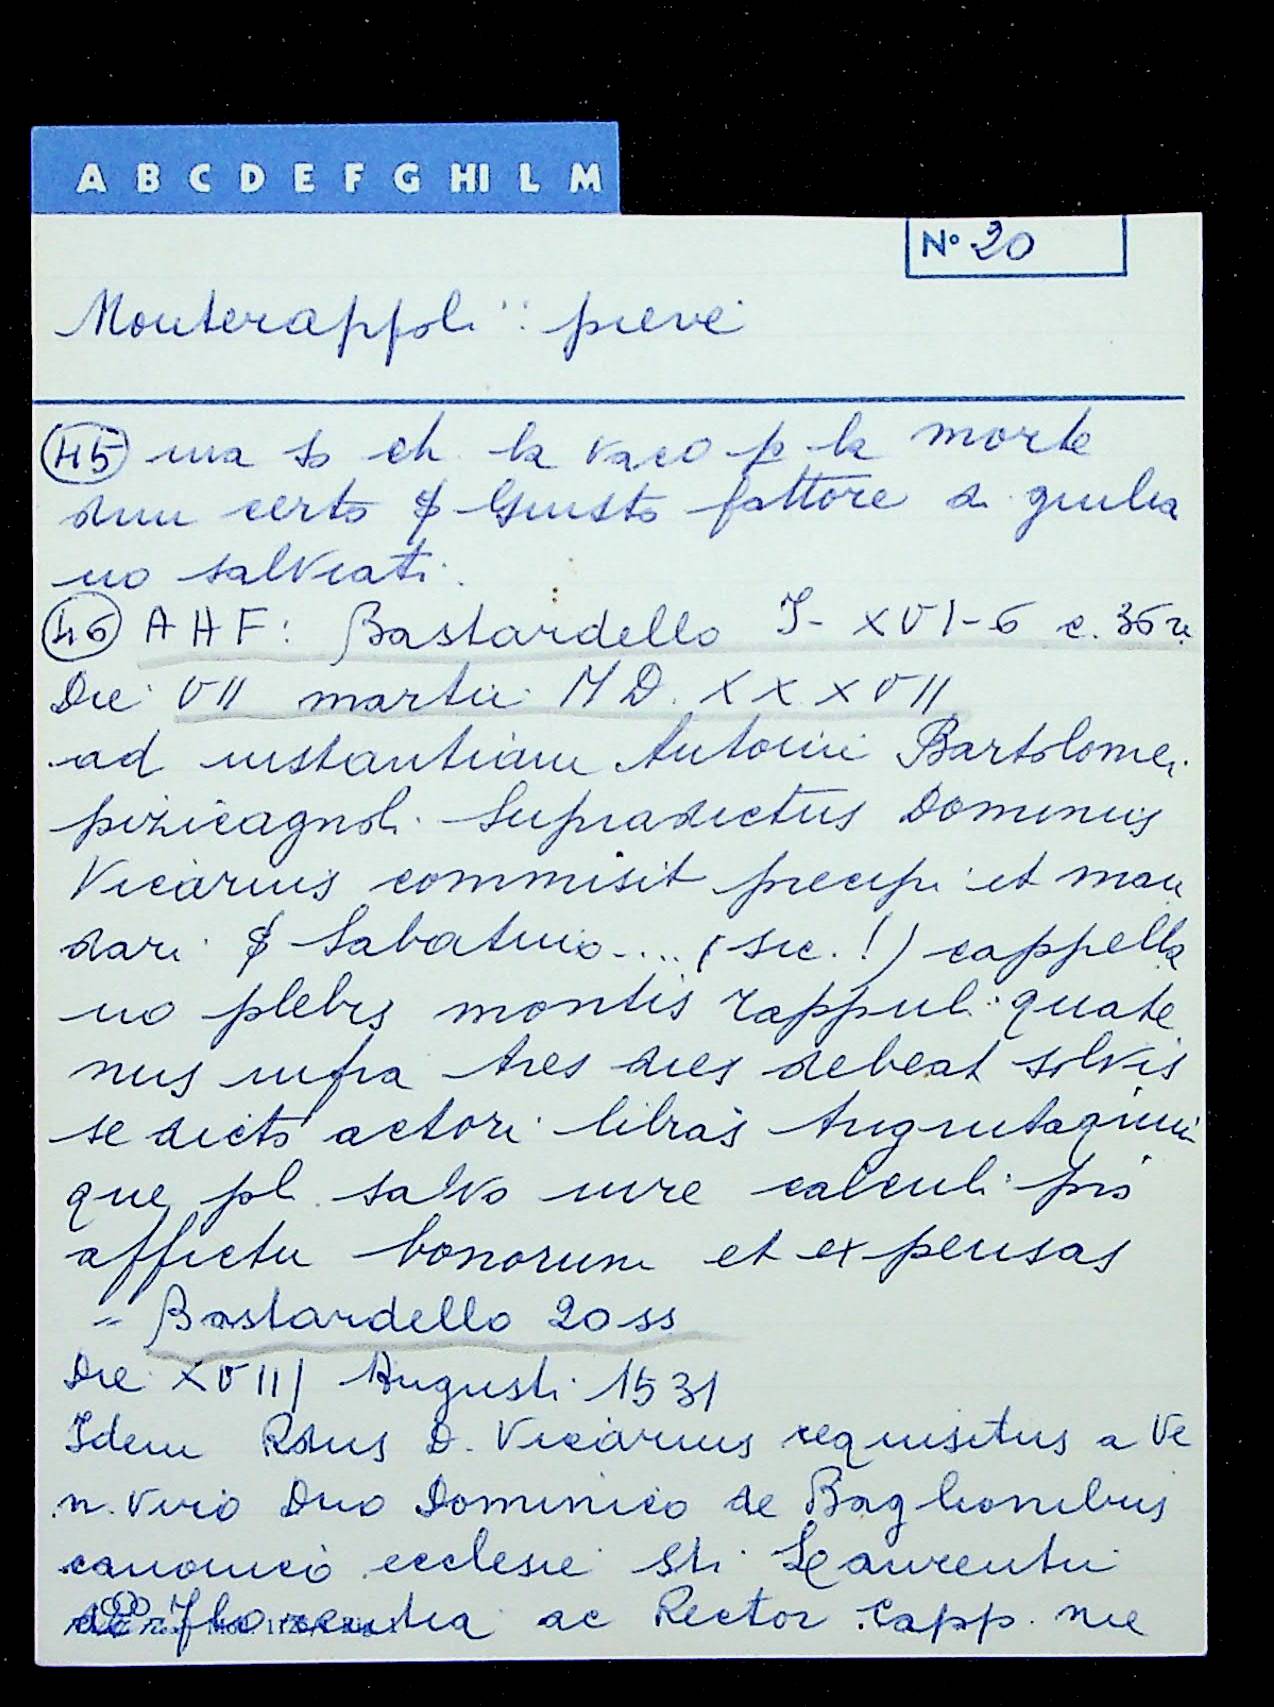 A B C D E F G HI L M
N° 20
Monterappoli: pieve
(45) ma so ch. la vaco p la morte
dun certo $ Giusto fattore di giulia
no salviati.
(46) A A F: Bastardello I- XVI-6 c. 36 r.
Die VII martii MD. XXXVII
ad instantiam Antonii Bartolomei
pizicagnoli Supradictus Dominus
Vicarius commisit precipi et man
dari $ Sabatino .... (sic.!) cappella
no plebis montis rappuli quate
nus infra tres dies debeat solvis
se dicto actori libras trigintaquin
que pl. salvo iure calculi pis
affictu bonorum et expensas
= Bastardello 20 ss
Die XVIII Augusti 1531
Idem Rdus D. Vicarius requisitus a Ve
n. viro Dno Dominico de Baglionibus
canonico ecclesie Sti Laurentii
de Florentia ac Rector Capp. nie